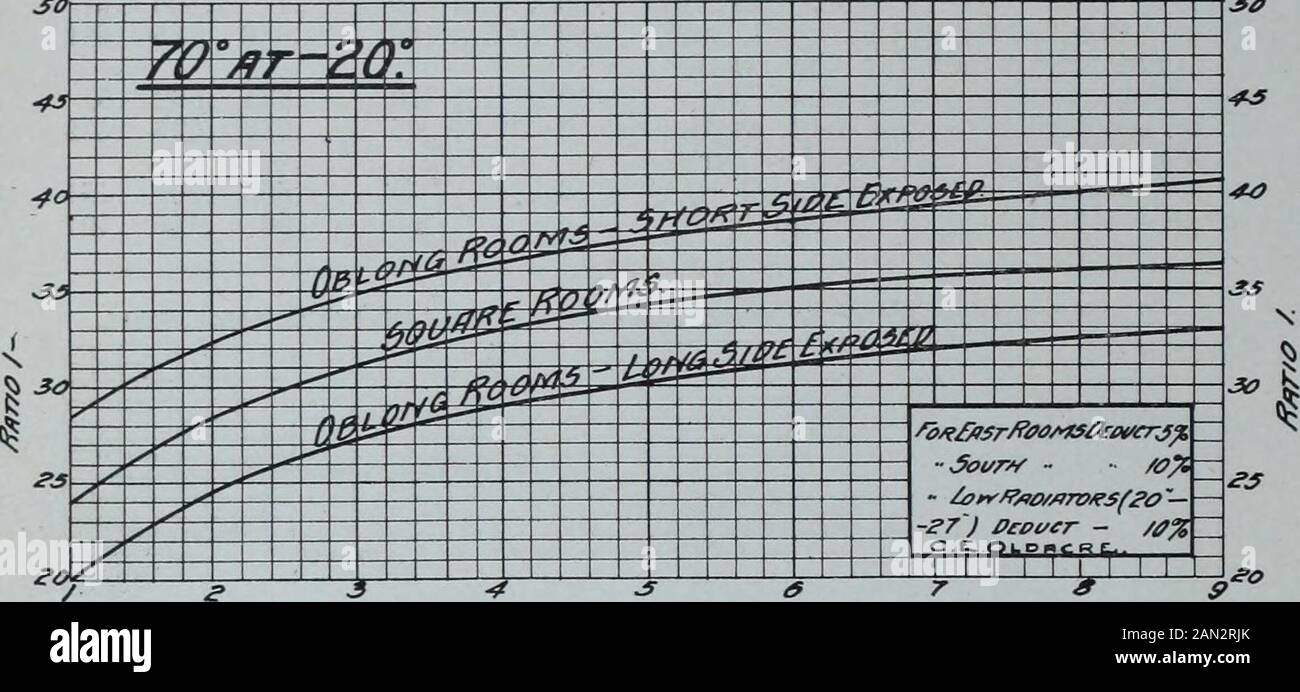 50 50
70° AT -20°.
45 45
40 40
OBLONG ROOMS - SHORT SIDE EXPOSED.
35 35
SQUARE ROOMS.
OBLONG ROOMS - LONG SIDE EXPOSED
RATIO 1-
RATIO 1.
30 30
FOR EAST ROOMS DEDUCT 5%
" SOUTH " " 10%
25 25
" LOW RADIATORS (20"-
-27") DEDUCT - 10%
C.E. OLDACRE.
20 20
1 2 3 4 5 6 7 8 9
a alamy
alamy
Image ID: 2AN2RJK
www.alamy.com